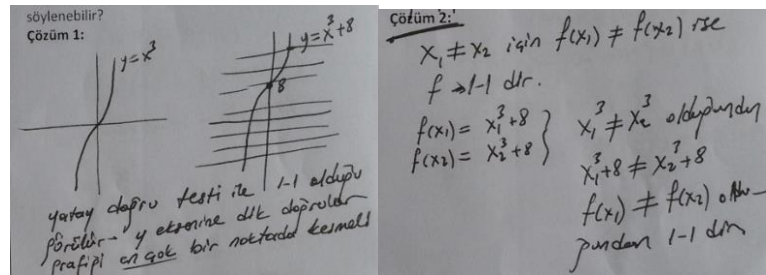 söylenebilir?
Çözüm 1:
y=x³
y=x³+8
8
yatay doğru testi ile 1-1 olduğu
görülür- y eksenine dik doğrular
grafiği en çok bir noktada kesmeli
Çözüm 2:
x₁ ≠ x₂ için f(x₁) ≠ f(x₂) ise
f → 1-1 dir.
f(x₁) = x₁³+8
f(x₂) = x₂³+8
x₁³ ≠ x₂³ olduğundan
x₁³+8 ≠ x₂³+8
f(x₁) ≠ f(x₂) oldu-
ğundan 1-1 dir